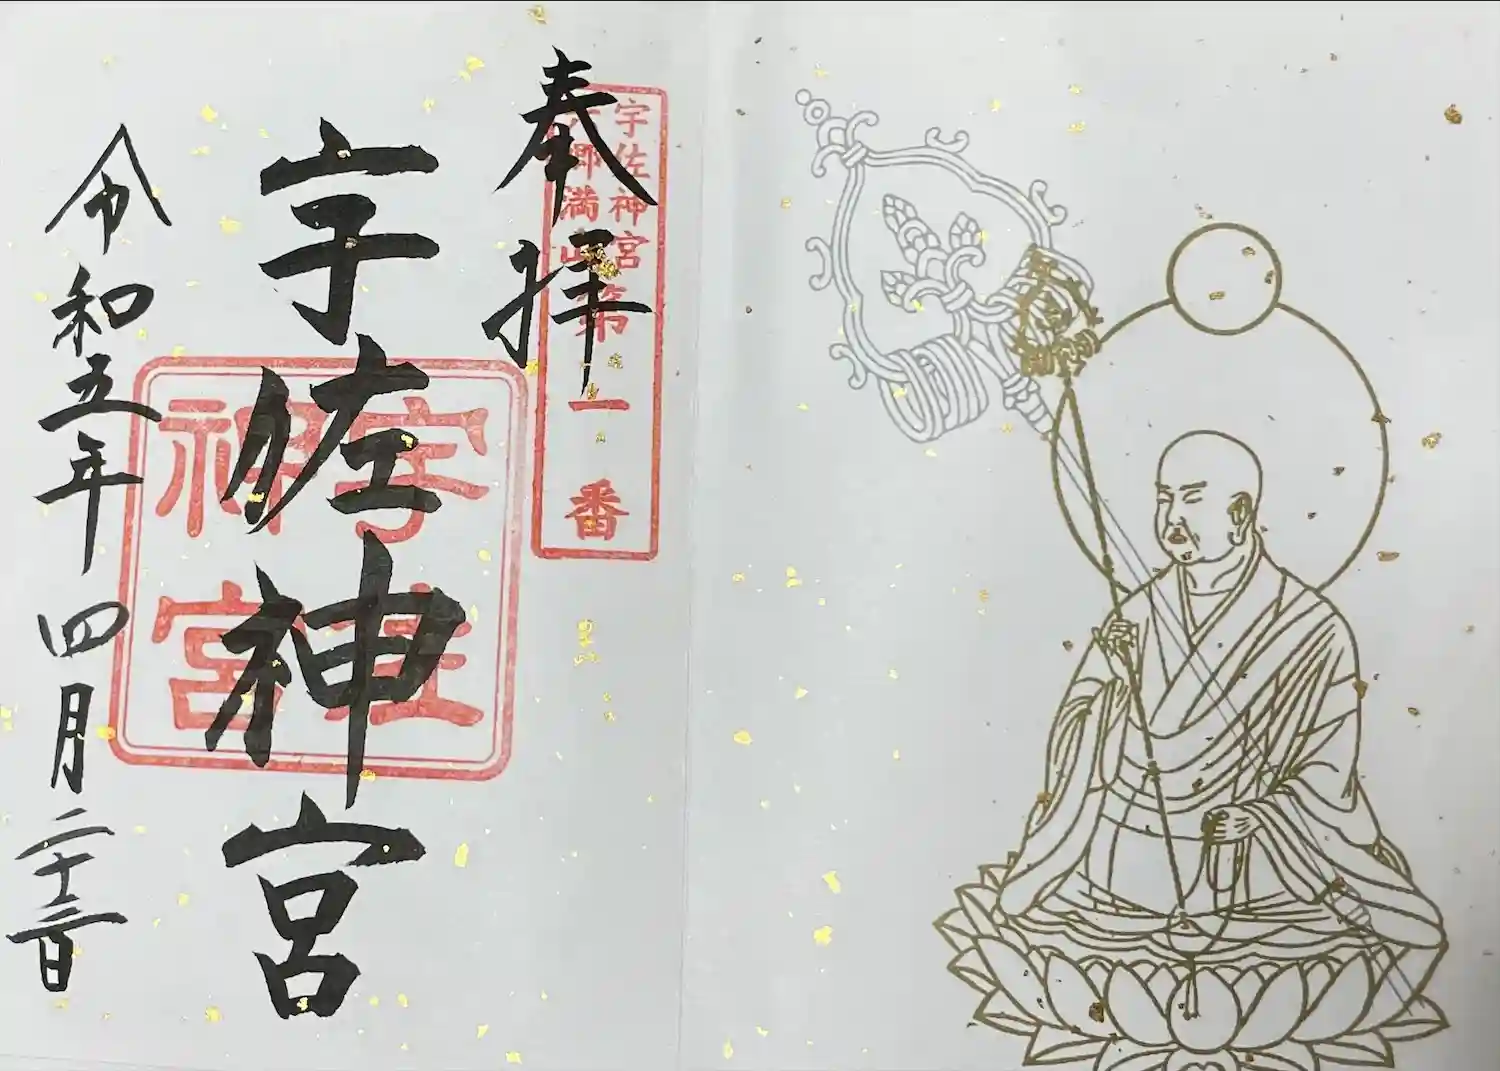 奉拝
宇佐神宮
六郷満山
第一番
宇佐神宮
宇佐神宮
令和五年四月二十三日